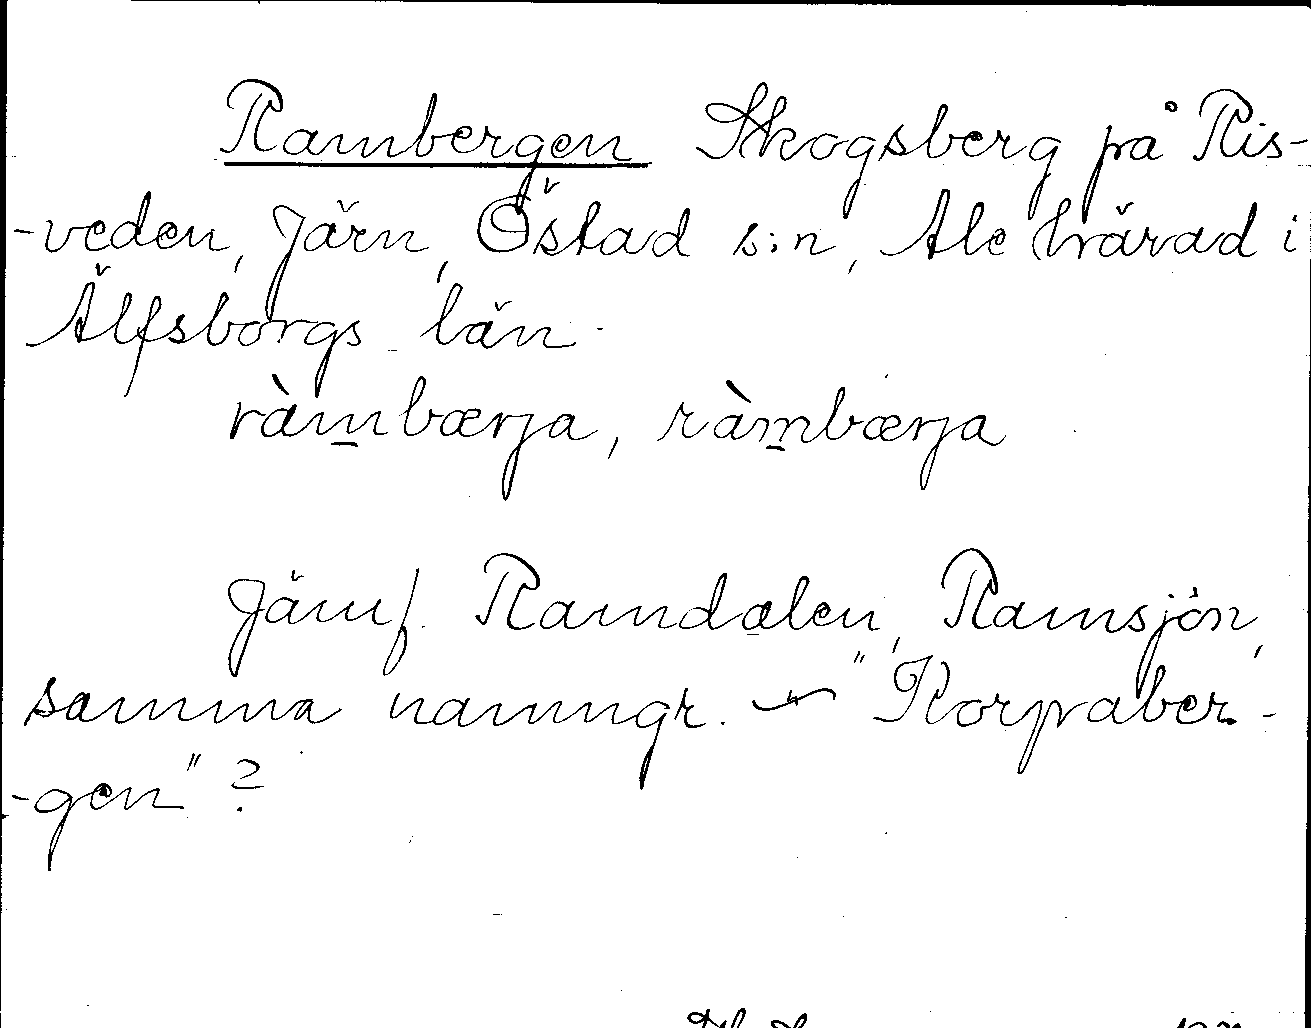 Rambergen Skogsberg på Ris-
-veden, Järn, Östad s:n, Ale härad i
Älfsborgs län.
ràm̲bærja, ràm̲bærja
Jämf. Ramdalen, Ramsjön,
samma namngr. "Korpaber-
-gen"?